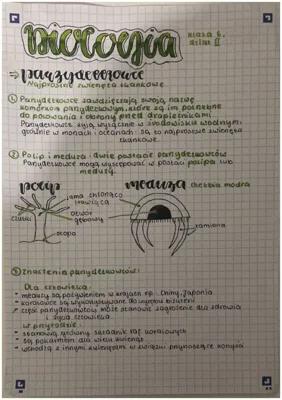 Biologia
klasa 6.
dział II
→ parzydełkowce
Najprostsze zwierzęta tkankowe
① Parzydełkowce zawdzięczają swoją nazwę
komórkom parzydełkowym, które są im potrzebne
do polowania i obrony przed drapieżnikami.
Parzydełkowce żyją wyłącznie w środowisku wodnym:
głównie w morzach i oceanach; są to najprostsze zwierzęta
tkankowe.
② Polip i meduza: dwie postacie parzydełkowców
Parzydełkowce mogą występować w postaci polipa lub
meduzy.
polip
meduza
chełbia modra
jama chłonąco
trawiąca
czułki
otwór
gębowy
stopa
ramiona
③ Znaczenie parzydełkowców:
Dla człowieka:
- meduzy są pożywieniem w krajach np. Chiny, Japonia
- koralowce są wykorzystywane do wyrobu biżuterii
- część parzydełkowców może stanowić zagrożenie dla zdrowia
i życia człowieka.
w przyrodzie:
- stanowią główny składnik raf koralowych
- są pokarmem dla wielu zwierząt
- wchodzą z innymi zwierzętami w związki przynoszące korzyści